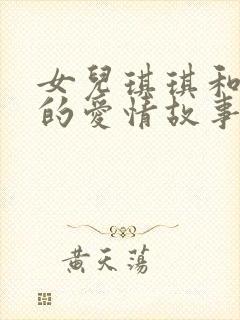 女兒琪琪和
的愛情故事
黃天蕩